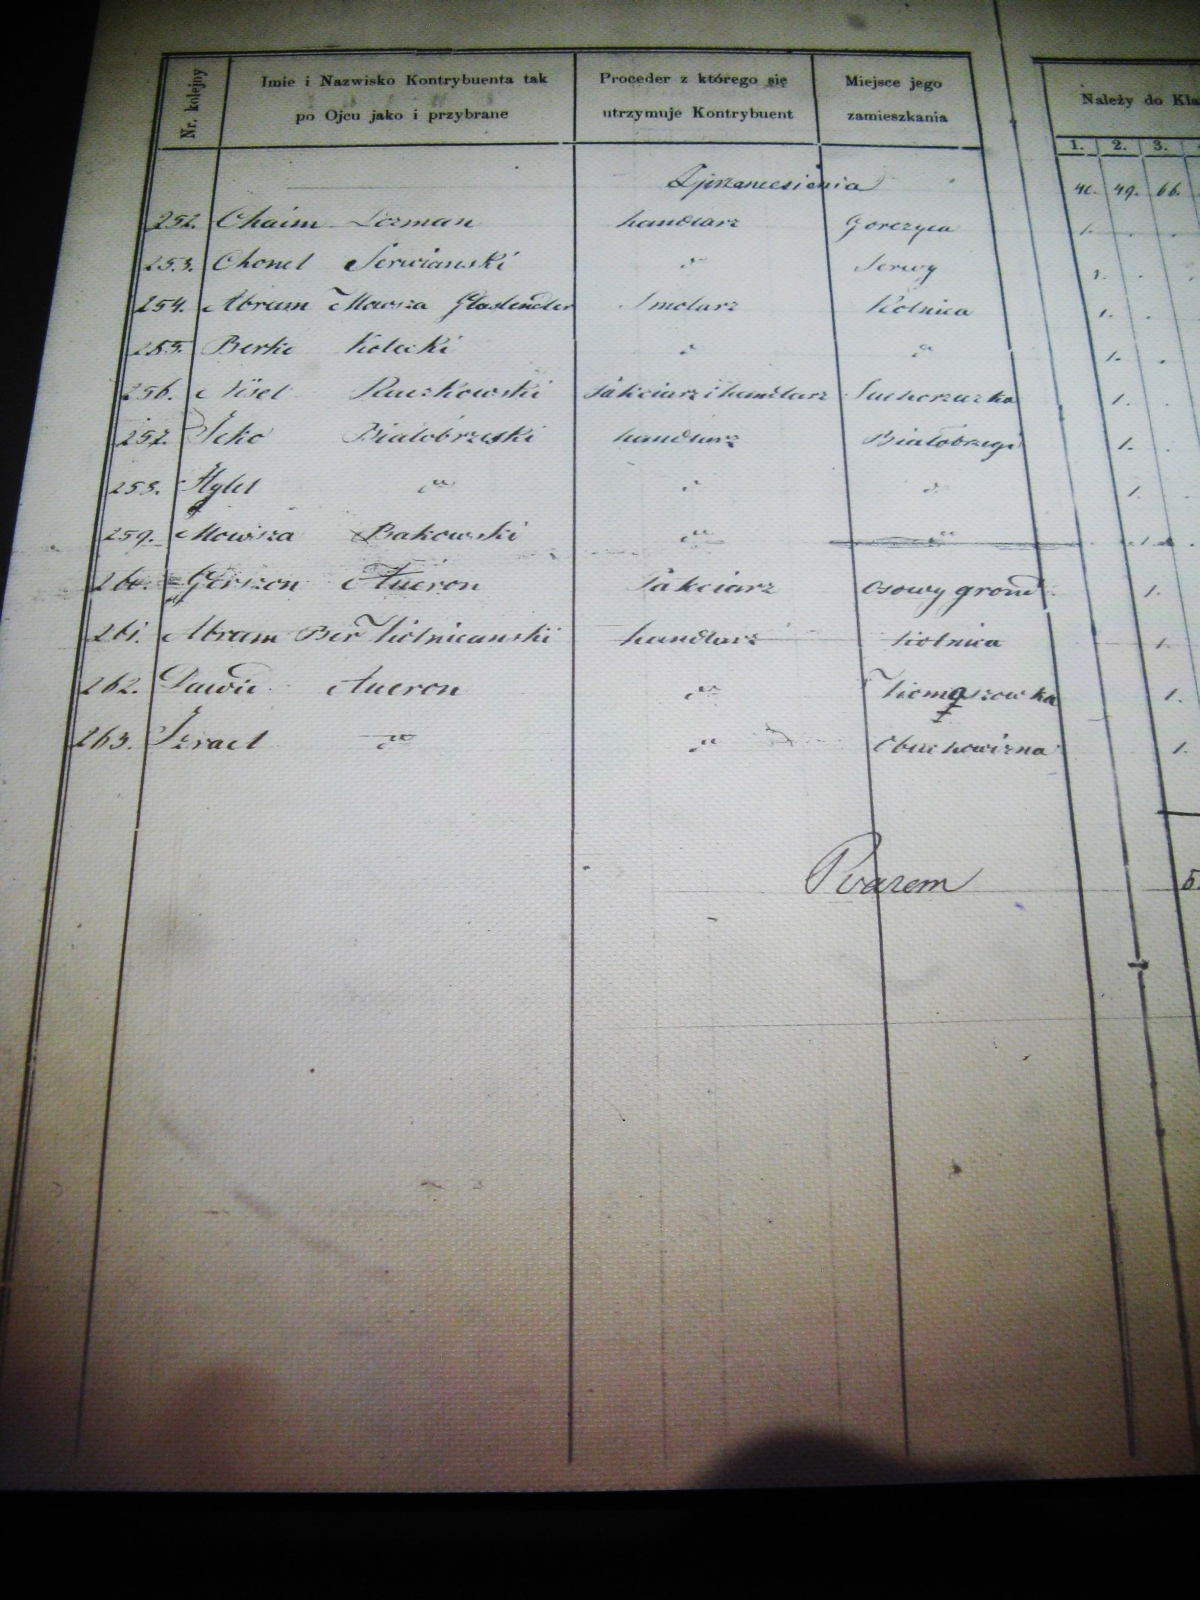 Nr. kolejny Imie i Nazwisko Kontrybuenta tak po Ojcu jako i przybrane Proceder z którego się utrzymuje Kontrybuent Miejsce jego zamieszkania Należy do Kla
1. 2. 3.
Z przeniesienia 46. 49. 66.
252. Chaim Lezman handlarz Gorczyca 1.
253. Chonel Serwianski " Serwy 1.
254. Abram Mowsza Glaslender Smolarz Kolnica 1.
255. Berko Kolecki " " 1.
256. Nisel Raczkowski Pakciarz i handlarz Sucharzeczka 1.
257. Icko Białobrzeski handlarz Białobrzegi 1.
258. " " " 1.
259. Mowsza Bakowski " " 1.
260. Gerszon Aueron Pakciarz Osowy grond 1.
261. Abram Ber Kolnicanski handlarz Kolnica 1.
262. Dawid Aueron " Komaszowka 1.
263. Izrael " " Obuchowizna 1.
Razem 5